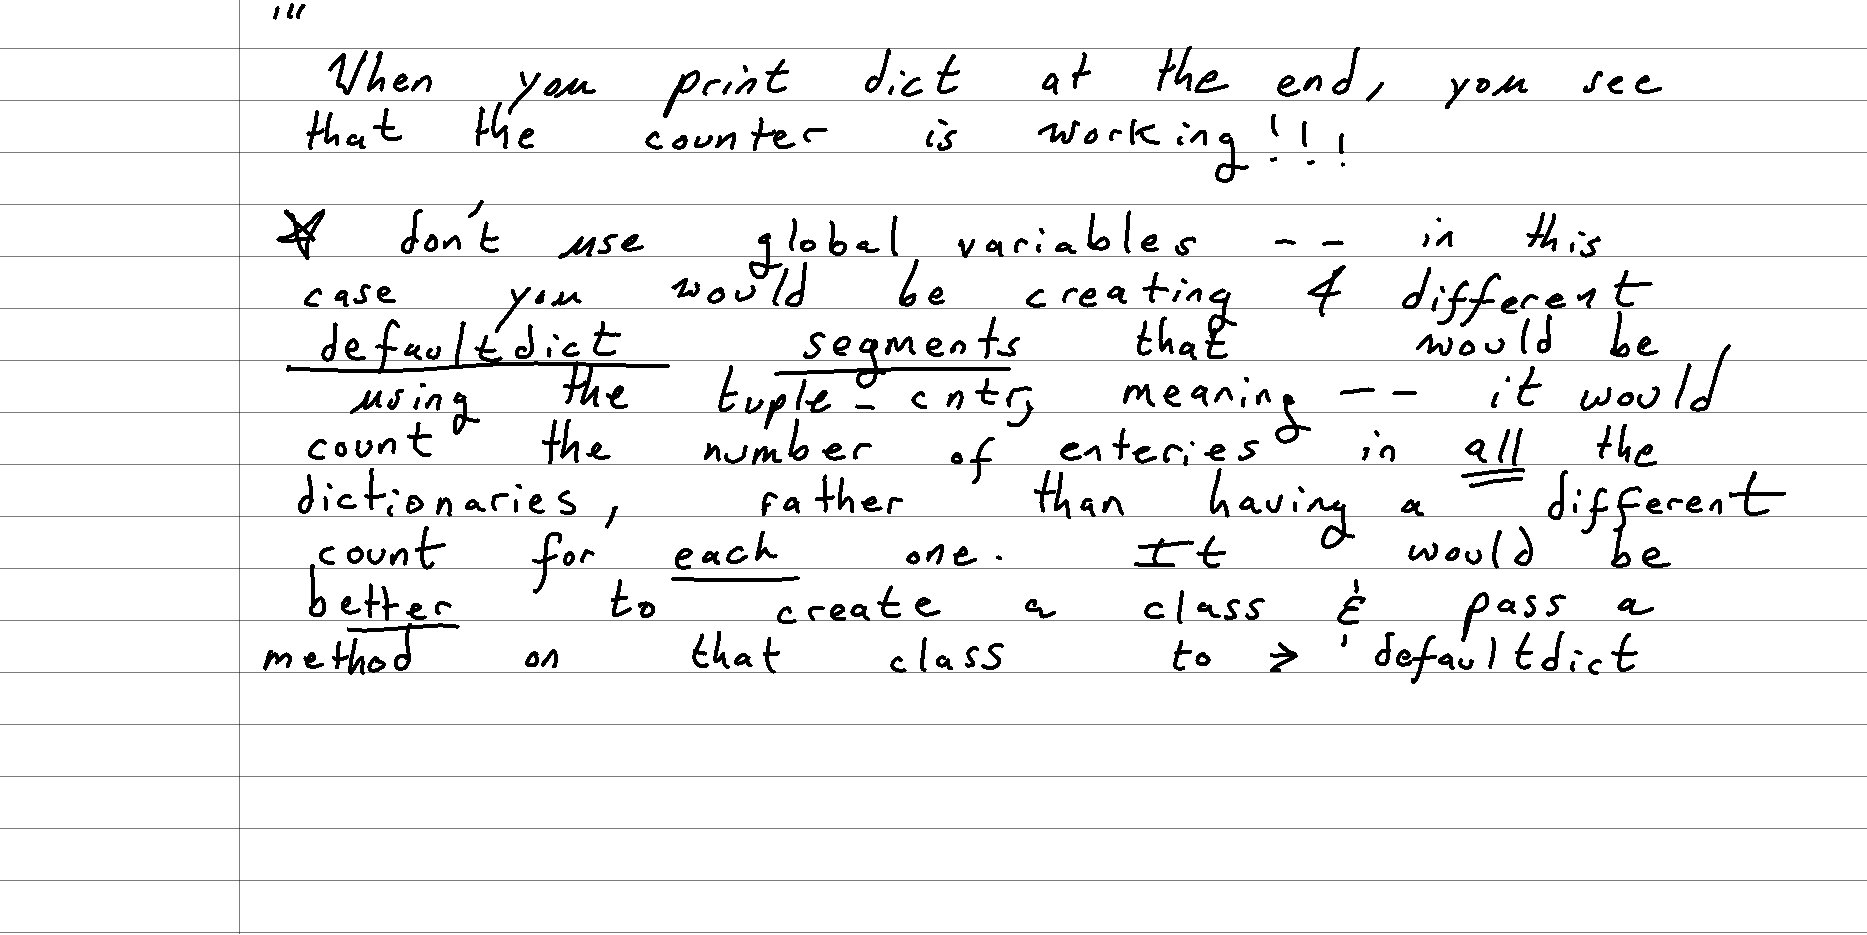 '''
When you print dict at the end, you see
that the counter is working!!!
☆ don't use global variables -- in this
case you would be creating 4 different
defaultdict segments that would be
using the tuple_cntr, meaning -- it would
count the number of enteries in all the
dictionaries, rather than having a different
count for each one. It would be
better to create a class & pass a
method on that class to → 'defaultdict